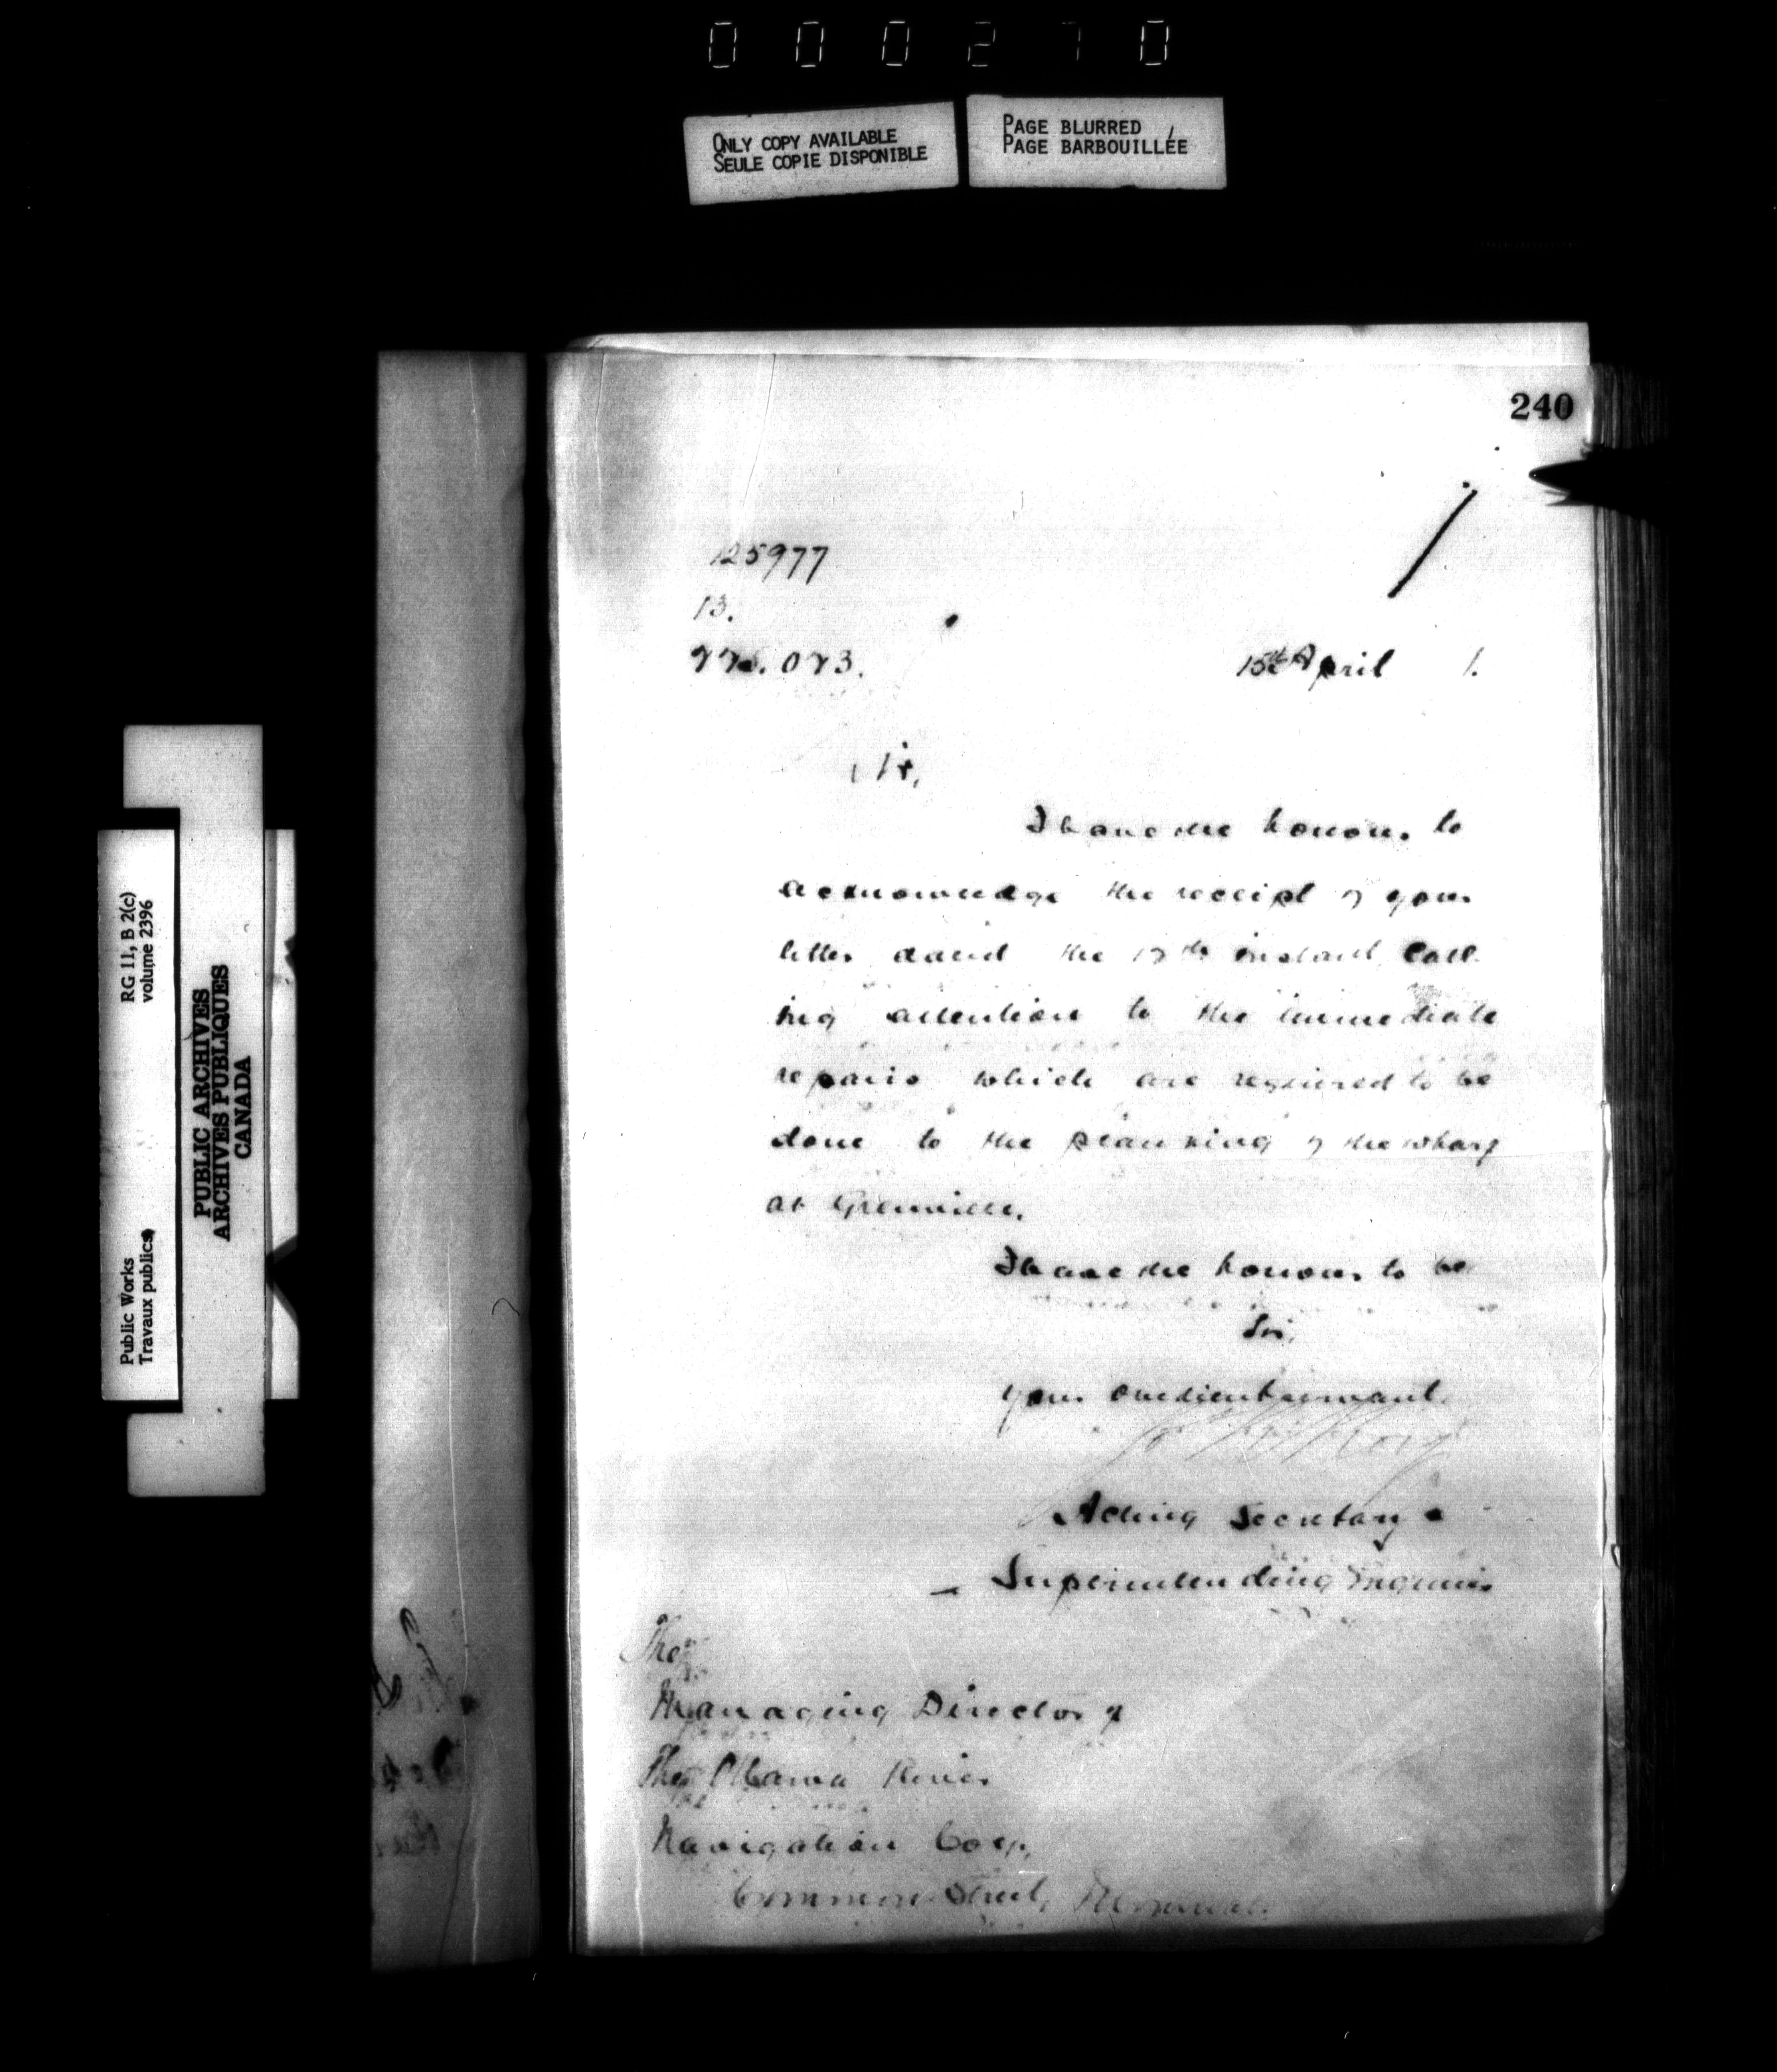 000270
ONLY COPY AVAILABLE
SEULE COPIE DISPONIBLE
PAGE BLURRED
PAGE BARBOUILLÉE
240
125977
13.
15th April 1.
Sir,
I have the honour to
acknowledge the receipt of your
letter dated the instant call
ing attention to the immediate
repairs which are required to be
done to the planking of the wharf
at Grenville.
I have the honour to be
Sir,
your obedient servant
Acting Secretary &
Superintending Engineer
The
Managing Director of
The Ottawa River
Navigation Coy,
Common Street, Montreal.
RG 11, B 2(c)
volume 2396
Public Works
Travaux publics
PUBLIC ARCHIVES
ARCHIVES PUBLIQUES
CANADA